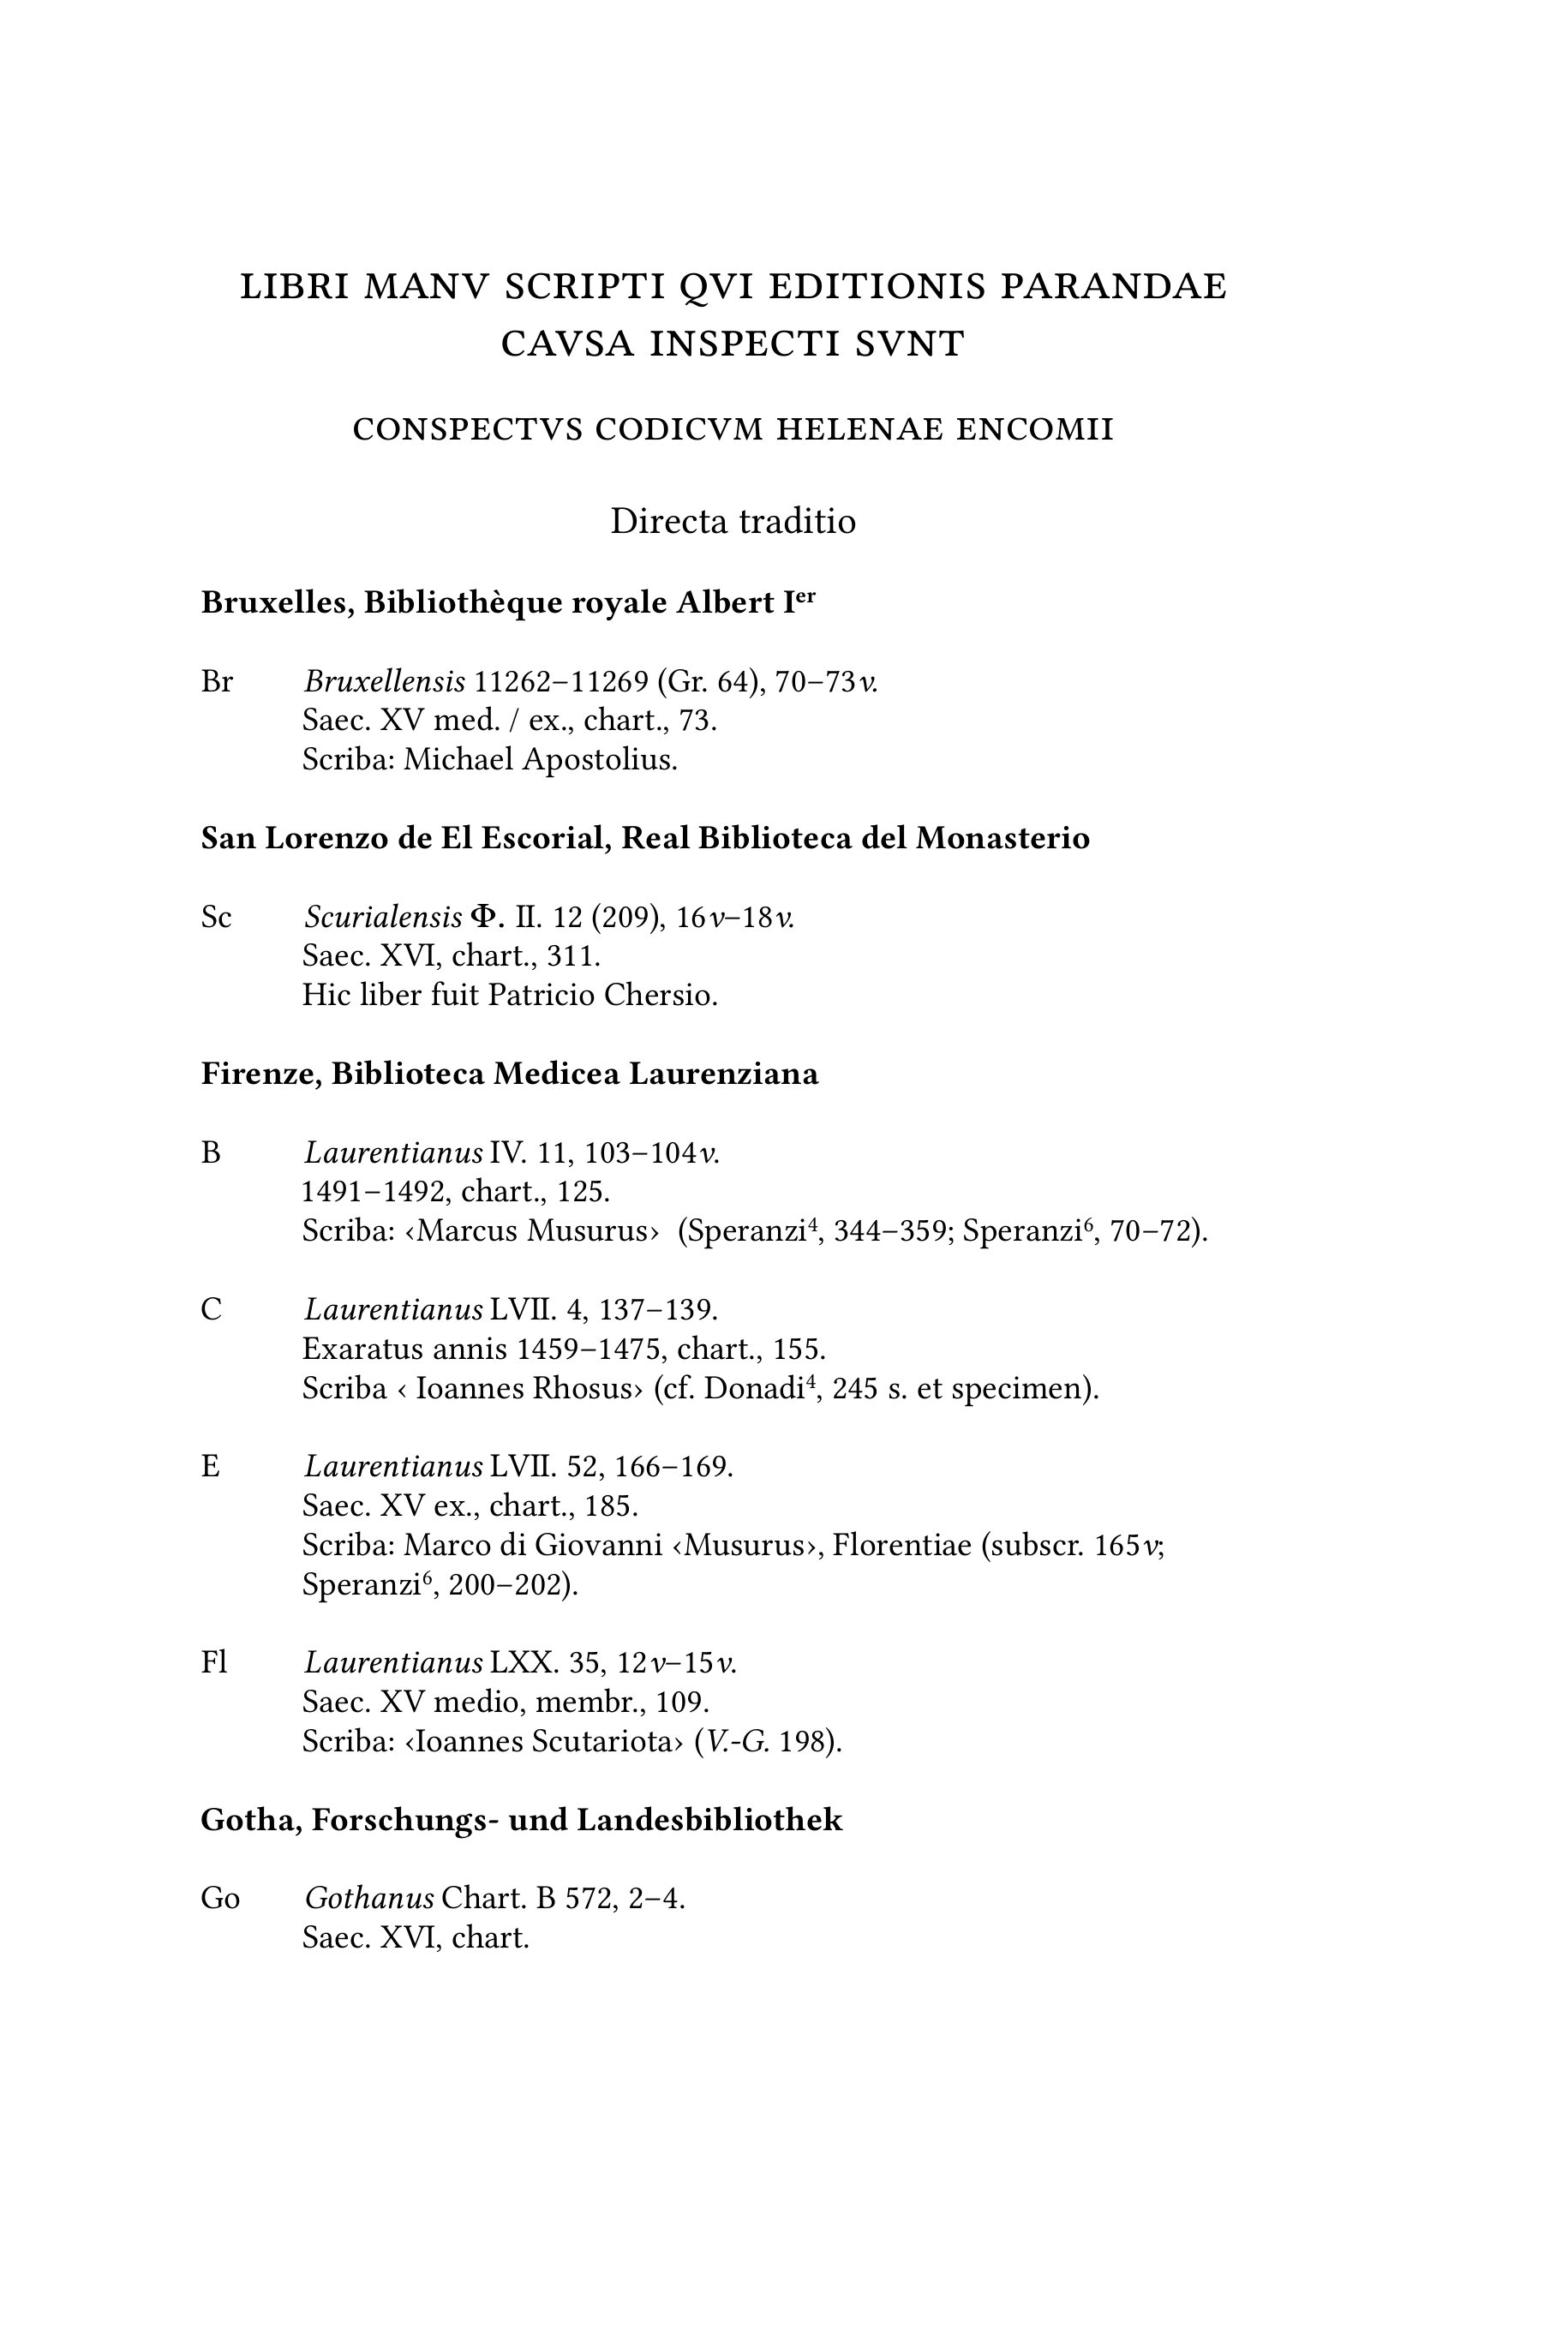 LIBRI MANV SCRIPTI QVI EDITIONIS PARANDAE
CAVSA INSPECTI SVNT
CONSPECTVS CODICVM HELENAE ENCOMII
Directa traditio
Bruxelles, Bibliothèque royale Albert Iᵉʳ
Br Bruxellensis 11262–11269 (Gr. 64), 70–73v.
Saec. XV med. / ex., chart., 73.
Scriba: Michael Apostolius.
San Lorenzo de El Escorial, Real Biblioteca del Monasterio
Sc Scurialensis Φ. II. 12 (209), 16v–18v.
Saec. XVI, chart., 311.
Hic liber fuit Patricio Chersio.
Firenze, Biblioteca Medicea Laurenziana
B Laurentianus IV. 11, 103–104v.
1491–1492, chart., 125.
Scriba: ‹Marcus Musurus› (Speranzi⁴, 344–359; Speranzi⁶, 70–72).
C Laurentianus LVII. 4, 137–139.
Exaratus annis 1459–1475, chart., 155.
Scriba ‹ Ioannes Rhosus› (cf. Donadi⁴, 245 s. et specimen).
E Laurentianus LVII. 52, 166–169.
Saec. XV ex., chart., 185.
Scriba: Marco di Giovanni ‹Musurus›, Florentiae (subscr. 165v;
Speranzi⁶, 200–202).
Fl Laurentianus LXX. 35, 12v–15v.
Saec. XV medio, membr., 109.
Scriba: ‹Ioannes Scutariota› (V.-G. 198).
Gotha, Forschungs- und Landesbibliothek
Go Gothanus Chart. B 572, 2–4.
Saec. XVI, chart.